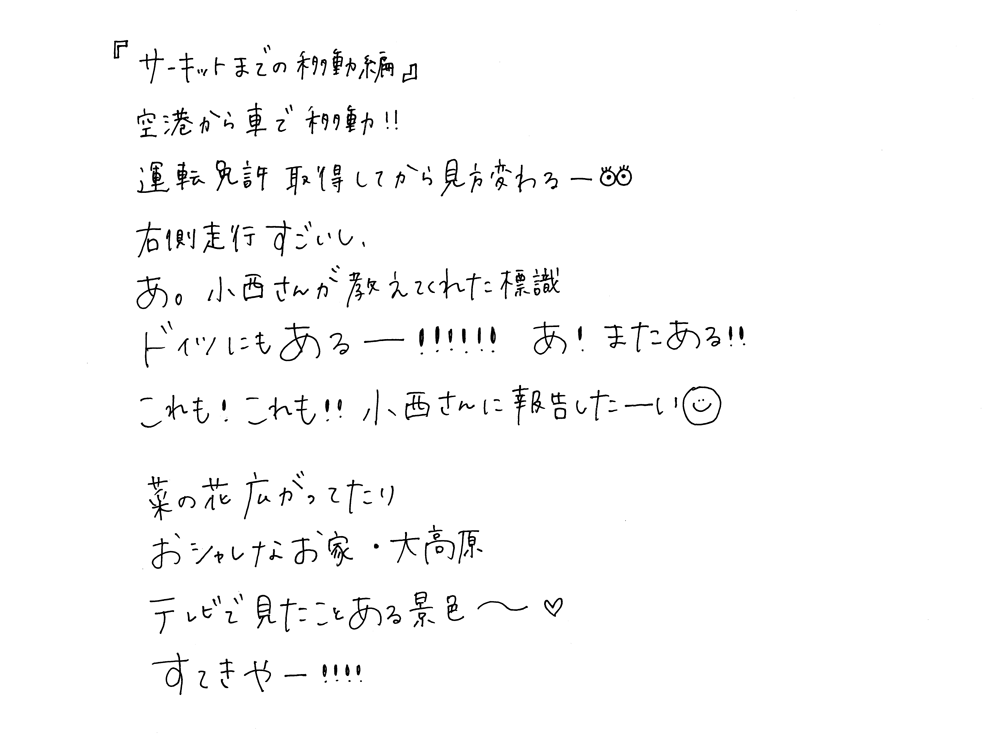 『サーキットまでの移動編』
空港から車で移動!!
運転免許取得してから見方変わるー
右側走行すごいし、
あ。小西さんが教えてくれた標識
ドイツにもあるー!!!!!! あ!またある!!
これも!これも!!小西さんに報告したーい
菜の花広がってたり
おシャレなお家・大高原
テレビで見たことある景色〜♡
すてきやー!!!!